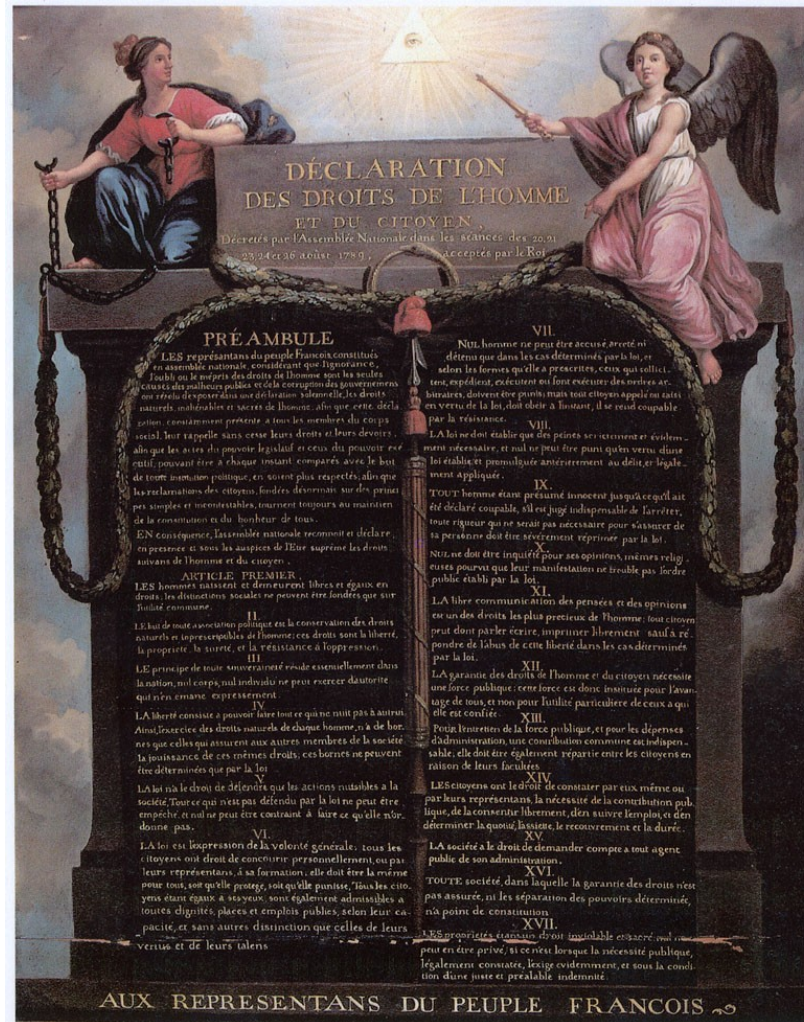 DÉCLARATION
DES DROITS DE L'HOMME
ET DU CITOYEN,
Décretés par l'Assemblée Nationale dans les séances des 20, 21
23, 24 et 26 août 1789, acceptés par le Roi
PRÉAMBULE
LES représentans du peuple François, constitués
en assemblée nationale, considérant que l'ignorance,
l'oubli ou le mépris des droits de l'homme sont les seules
causes des malheurs publics et de la corruption des gouvernemens
ont résolu d'exposer dans une déclaration solemnelle, les droits
naturels, inaliénables et sacrés de l'homme; afin que cette décla
ration, constamment présente a tous les membres du corps
social, leur rappelle sans cesse leurs droits et leurs devoirs,
afin que les actes du pouvoir législatif et ceux du pouvoir exé
cutif, pouvant être a chaque instant comparés avec le but
de toute institution politique, en soient plus respectés; afin que
les reclamations des citoyens, fondées désormais sur des princi
pes simples et incontestables, tournent toujours au maintien
de la constitution et du bonheur de tous.
EN conséquence, l'assemblée nationale reconnoit et déclare,
en presence et sous les auspices de l'Etre suprême les droits
suivans de l'homme et du citoyen.
ARTICLE PREMIER.
LES hommes naissent et demeurent libres et égaux en
droits, les distinctions sociales ne peuvent être fondées que sur
l'utilité commune.
II.
LE but de toute association politique est la conservation des droits
naturels et inprescriptibles de l'homme; ces droits sont la liberté,
la proprieté, la sureté, et la résistance à l'oppression.
III.
LE principe de toute souveraineté réside essentiellement dans
la nation, nul corps, nul individu ne peut exercer d'autorité
qui n'en emane expressement.
IV.
LA liberté consiste a pouvoir faire tout ce qui ne nuit pas à autrui
Ainsi, l'exercice des droits naturels de chaque homme, n'a de bor
nes que celles qui assurent aux autres membres de la société
la jouissance de ces mêmes droits; ces bornes ne peuvent
être déterminées que par la loi
V.
LA loi n'a le droit de défendre que les actions nuisibles a la
société, Tout ce qui n'est pas défendu par la loi ne peut être
empéché, et nul ne peut être contraint à faire ce qu'elle n'or
donne pas.
VI.
LA loi est l'expression de la volonté générale; tous les
citoyens ont droit de concourir personnellement, ou par
leurs représentans, à sa formation; elle doit être la même
pour tous, soit qu'elle protege, soit qu'elle punisse, Tous les cito
yens étant égaux à ses yeux, sont également admissibles a
toutes dignités, places et emplois publics, selon leur ca
pacité, et sans autres distinction que celles de leurs
vertus et de leurs talens
VII.
NUL homme ne peut être accusé, arreté ni
détenu que dans les cas déterminés par la loi, et
selon les formes qu'elle a prescrites, ceux qui sollici
tent, expédient, exécutent ou font exécuter des ordres ar
bitraires, doivent être punis; mais tout citoyen appelé ou saisi
en vertu de la loi, doit obéir a l'instant, il se rend coupable
par la résistance.
VIII.
LA loi ne doit établir que des peines strictement et évidem
ment nécessaire, et nul ne peut être puni qu'en vertu d'une
loi établie et promulguée antérierement au délit, et légale
ment appliquée.
IX.
TOUT homme étant présumé innocent jusqu'a ce qu'il ait
été déclaré coupable, s'il est jugé indispensable de l'arrêter,
toute rigueur qui ne serait pas nécessaire pour s'assurer de
sa personne doit être sévèrement réprimée par la loi.
X.
NUL ne doit être inquiété pour ses opinions, mêmes religi
euses pourvu que leur manifestation ne trouble pas l'ordre
public établi par la loi.
XI.
LA libre communication des pensées et des opinions
est un des droits les plus precieux de l'homme; tout citoyen
peut dont parler écrire, imprimer librement sauf a ré
pondre de l'abus de cette liberté dans les cas déterminés
par la loi.
XII.
LA garantie des droits de l'homme et du citoyen nécessite
une force publique; cette force est donc instituée pour l'avan
tage de tous, et non pour l'utilité particulière de ceux a qui
elle est confiée
XIII.
POUR l'entretien de la force publique, et pour les dépenses
d'administration, une contribution commune est indispen
sable, elle doit être également répartie entre les citoyens en
raison de leurs facultées
XIV
LES citoyens ont le droit de constater par eux même ou
par leurs représentans, la nécessité de la contribution pub
lique, de la consentir librement, d'en suivre l'emploi, et d'en
déterminer la quotité, l'assiette, le recouvrement et la durée.
XV.
LA société a le droit de demander compte a tout agent
public de son administration.
XVI.
TOUTE société, dans laquelle la garantie des droits n'est
pas assurée, ni les séparation des pouvoirs déterminée,
n'a point de constitution
XVII.
LES proprietés étant un droit inviolable et sacré, nul ne
peut en être privé, si ce n'est lorsque la nécessité publique,
légalement constatée, l'exige evidemment, et sous la condi
tion d'une juste et préalable indemnité
AUX REPRESENTANS DU PEUPLE FRANCOIS